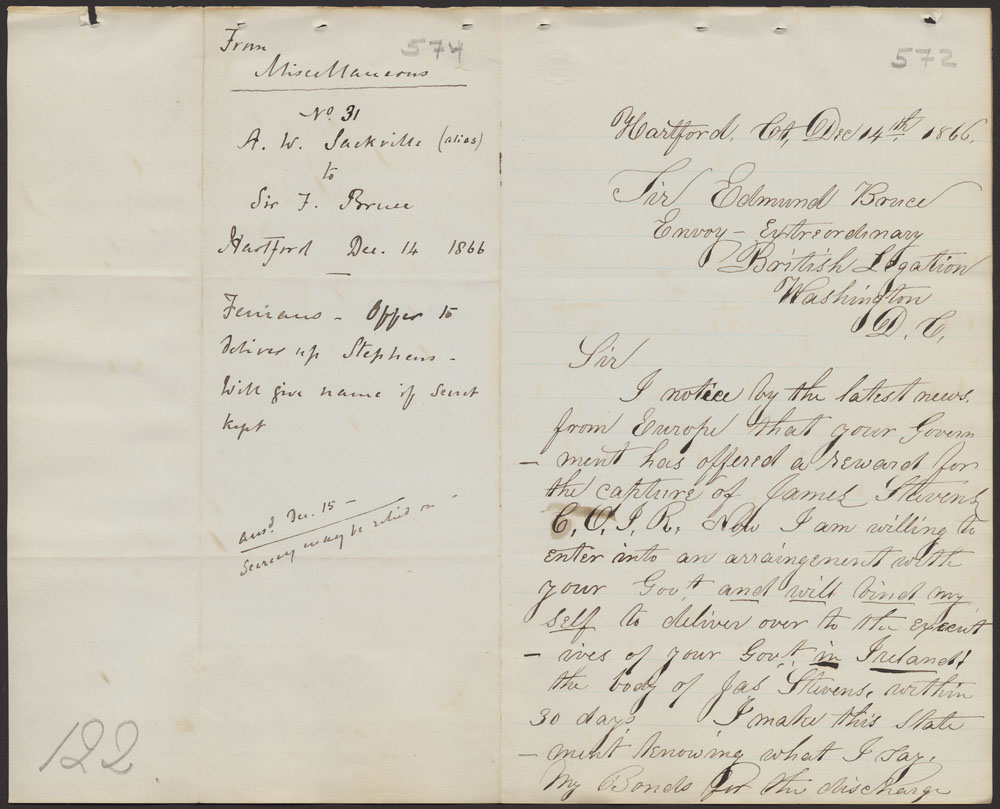 From
574
Miscellaneous
No. 31
A. W. Sackville (alias)
to
Sir F. Bruce
Hartford Dec. 14 1866
Fenians - Offer to
deliver up Stephens -
Will give name if Secret
kept
ansd. Dec. 15 -
Secrecy may be relied on
122
572
Hartford. Ct, Dec 14th 1866.
Sir Edmund Bruce
Envoy - Extreordinary
British Legation
Washington
D. C,
Sir
I notice by the latest news,
from Europe that your Govern
- ment has offered a reward for
the capture of James Stevens
C, O, I, R, Now I am willing to
enter into an arraingement with
your Gov,t and will bind my
self to deliver over to the execut
- ives of your Gov,t in Ireland;
the body of Jas Stevens, within
30 days I make this State
- ment knowing what I say,
My Bonds for the discharge